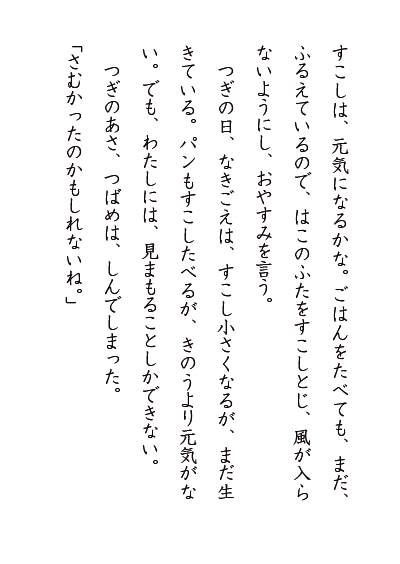 すこしは、元気になるかな。ごはんをたべても、まだ、
ふるえているので、はこのふたをすこしとじ、風が入ら
ないようにし、おやすみを言う。
つぎの日、なきごえは、すこし小さくなるが、まだ生
きている。パンもすこしたべるが、きのうより元気がな
い。でも、わたしには、見まもることしかできない。
つぎのあさ、つばめは、しんでしまった。
「さむかったのかもしれないね。」